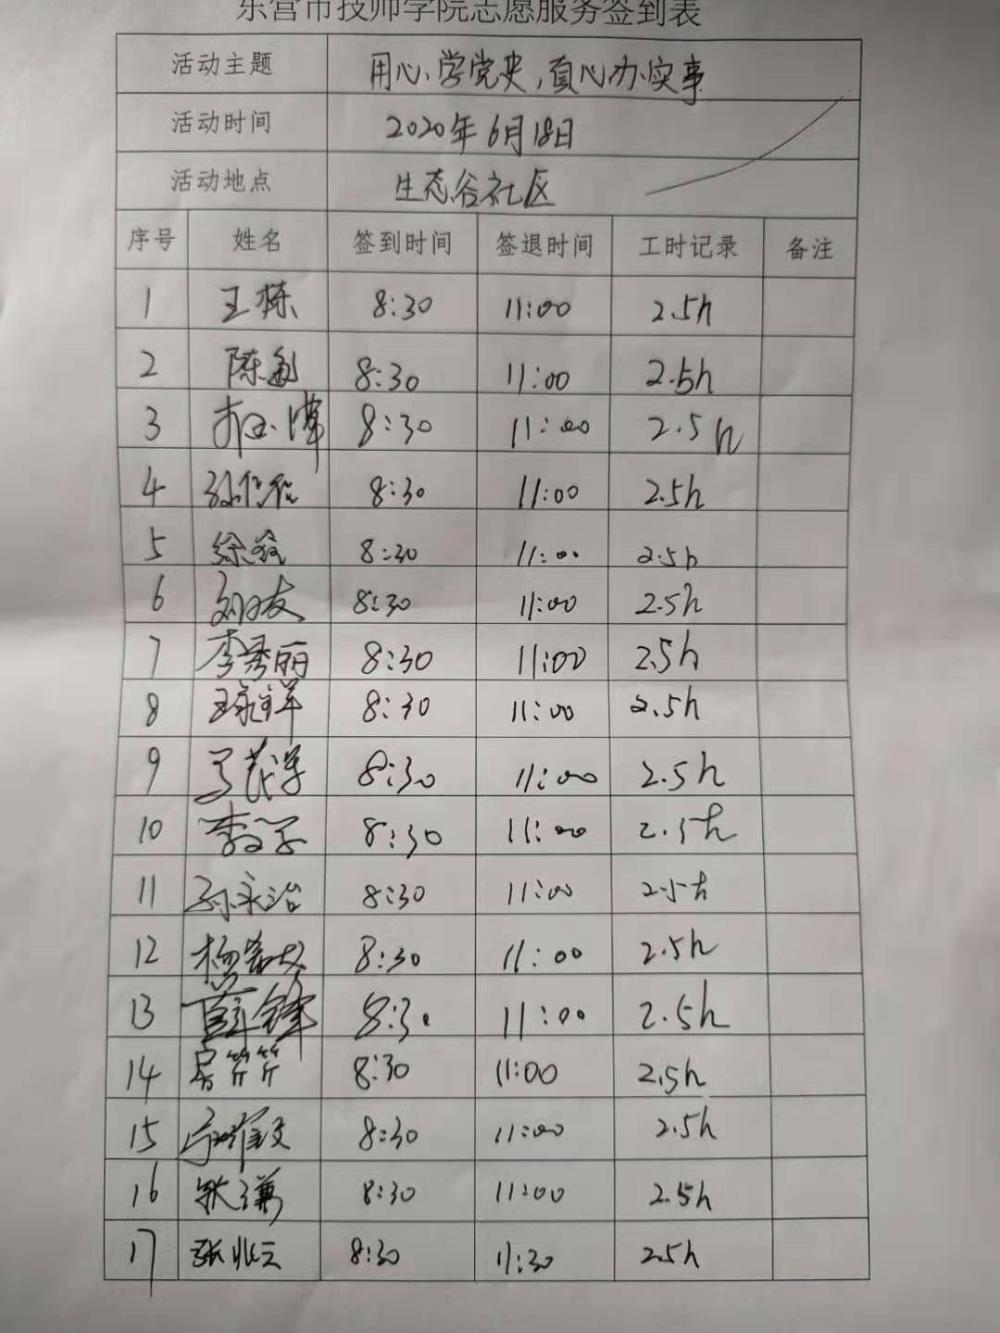 东营市技师学院志愿服务签到表
活动主题 用心学党史,真心办实事
活动时间 2020年6月18日
活动地点 生态谷社区
序号 姓名 签到时间 签退时间 工时记录 备注
1 王栋 8:30 11:00 2.5h
2 陈 8:30 11:00 2.5h
3 8:30 11:00 2.5h
4 8:30 11:00 2.5h
5 徐 8:30 11:00 2.5h
6 刘 友 8:30 11:00 2.5h
7 李秀丽 8:30 11:00 2.5h
8 王 祥 8:30 11:00 2.5h
9 马 8:30 11:00 2.5h
10 李 8:30 11:00 2.5h
11 孙永治 8:30 11:00 2.5h
12 杨 8:30 11:00 2.5h
13 薛锋 8:30 11:00 2.5h
14 房竹竹 8:30 11:00 2.5h
15 8:30 11:00 2.5h
16 8:30 11:00 2.5h
17 张兆云 8:30 11:30 2.5h